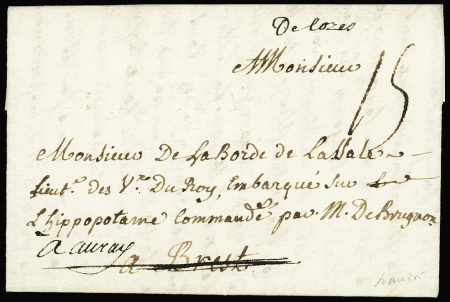 De Cozes
A Monsieur
15
Monsieur De La Borde de Lassale
Lieut.t des V.x Du Roy, Embarqué sur Le
L'hippopotame Commandé par M. De Brugnon
a auray
a Brest